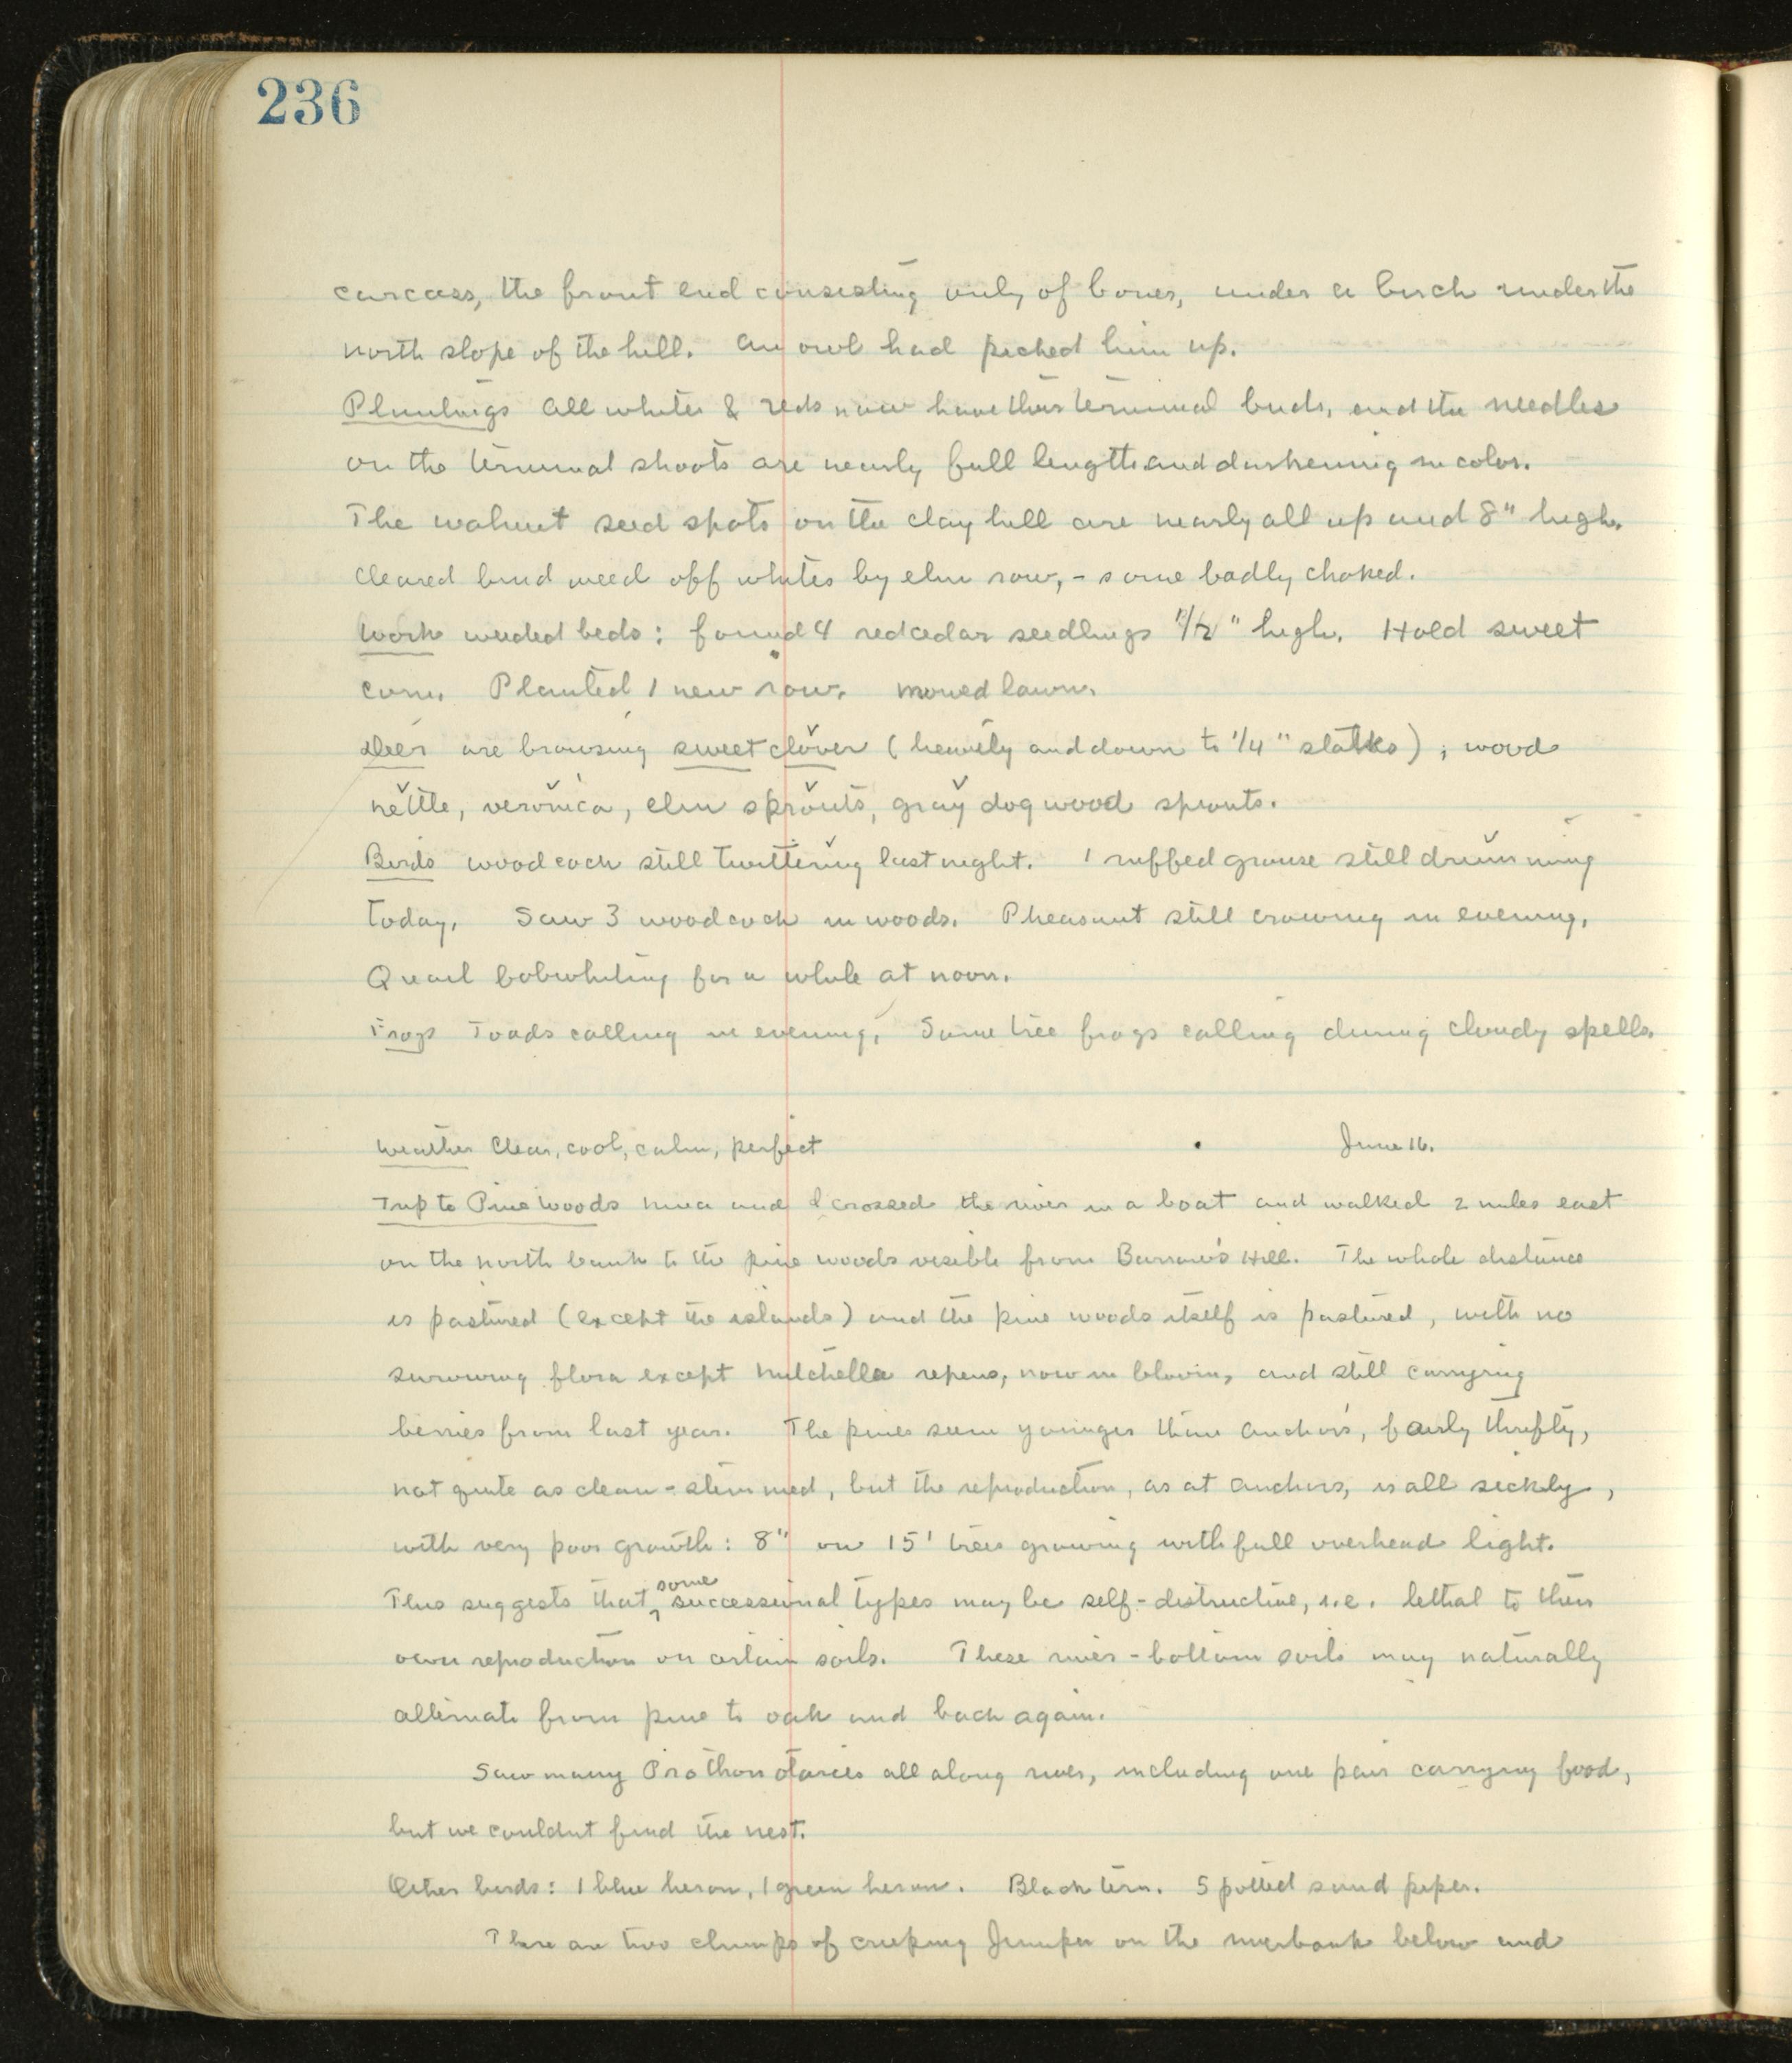 236
carcass, the front end consisting only of bones, under a birch under the
north slope of the hill. An owl had picked him up.
Plantings All whites & reds now have their terminal buds, and the needles
on the terminal shoots are nearly full length and darkening in color.
The walnut seed spots on the clay hill are nearly all up and 8" high.
Cleared bind weed off whites by elm row, - some badly choked.
Work weeded beds: found 4 redcedar seedlings 1/2" high. Hoed sweet
corn. Planted 1 new row. Mowed lawn.
Deer are browsing sweet clover (heavily and down to 1/4" stalks); wood
nettle, veronica, elm sprouts, gray dogwood sprouts.
Birds woodcock still twittering last night. 1 ruffed grouse still drumming
today. Saw 3 woodcock in woods. Pheasant still crowing in evening.
Quail bobwhiting for a while at noon.
Frogs Toads calling in evening. Some tree frogs calling during cloudy spells.
Weather Clear, cool, calm, perfect June 16.
Trip to Pine Woods Nina and I crossed the river in a boat and walked 2 miles east
on the north bank to the pine woods visible from Barrow's Hill. The whole distance
is pastured (except the islands) and the pine woods itself is pastured, with no
surviving flora except Mitchella repens, now in bloom, and still carrying
berries from last year. The pines seem younger than Anchor's, fairly thrifty,
not quite as clean-stemmed, but the reproduction, as at Anchors, is all sickly,
with very poor growth: 8" on 15' trees growing with full overhead light.
This suggests that some successional types may be self-destructive, i.e. lethal to their
own reproduction on certain soils. These river-bottom soils may naturally
alternate from pine to oak and back again.
Saw many Prothonotaries all along river, including one pair carrying food,
but we couldnt find the nest.
Other birds: 1 blue heron, 1 green heron. Black tern. Spotted sand piper.
There are two clumps of creeping Juniper on the riverbank below and